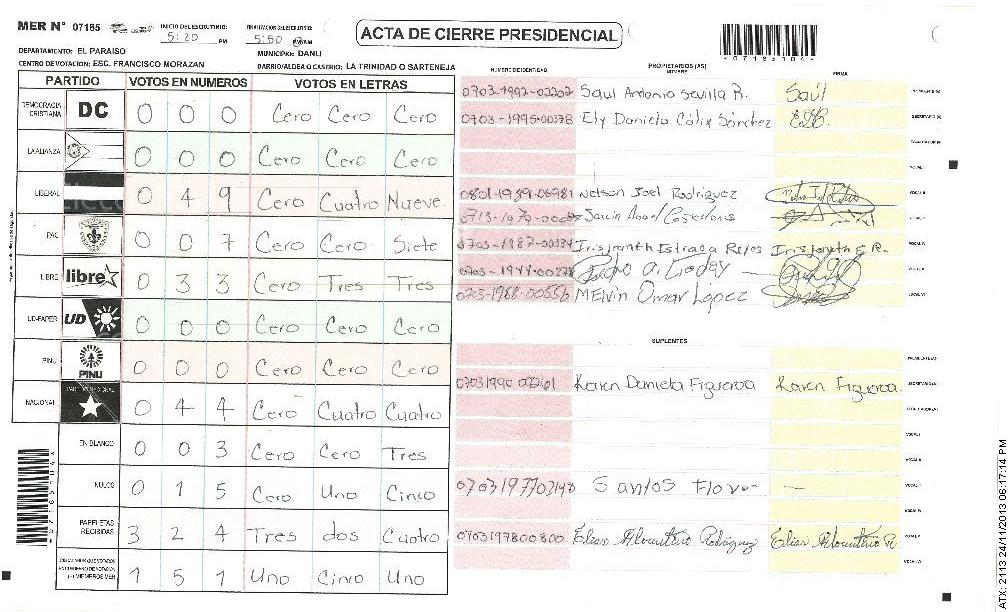 MER N° 07185
INICIO DEL ESCRUTINIO: 5:20 PM
FINALIZACION DEL ESCRUTINIO: 5:50 PM
ACTA DE CIERRE PRESIDENCIAL
DEPARTAMENTO: EL PARAISO
MUNICIPIO: DANLI
CENTRO DE VOTACION: ESC. FRANCISCO MORAZAN
BARRIO/ALDEA O CASERIO: LA TRINIDAD O SARTENEJA
PARTIDO VOTOS EN NUMEROS VOTOS EN LETRAS
DEMOCRACIA CRISTIANA DC 0 0 0 Cero Cero Cero
LA ALIANZA 0 0 0 Cero Cero Cero
LIBERAL 0 4 9 Cero Cuatro Nueve
PAC 0 0 7 Cero Cero Siete
LIBRE libre 0 3 3 Cero Tres Tres
UD-FAPER UD 0 0 0 Cero Cero Cero
PINU PINU 0 0 0 Cero Cero Cero
NACIONAL 0 4 4 Cero Cuatro Cuatro
EN BLANCO 0 0 3 Cero Cero Tres
NULOS 0 1 5 Cero Uno Cinco
PAPELETAS RECIBIDAS 3 2 4 Tres dos Cuatro
1 5 1 Uno Cinco Uno
NUMERO DE IDENTIDAD PROPIETARIOS (AS) NOMBRE FIRMA
0703-1992-02202 Saul Antonio Sevilla R. Saúl
0703-1995-00378 Ely Daniela Cálix Sánchez
0801-1939-06981 Nelson Joel Rodriguez
Iris Janeth Estrada Reyes Iris Janeth E R.
Pedro A. Godoy
0703-1988-00556 MElvin Omar López
SUPLENTES
Karen Daniela Figueroa Karen Figueroa
Santos Flores
0703197800800 Elias
ATX: 2113 24/11/2013 06:17:14 PM